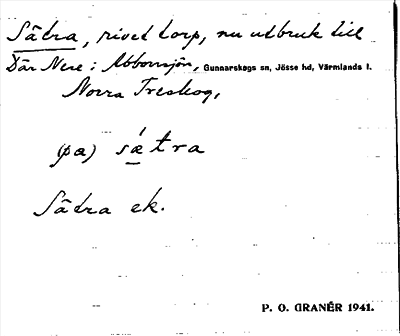 Sätra, rivet torp, nu utbruk till
Där Nere i Abborrsjön, Gunnarskogs sn, Jösse hd, Värmlands l.
Norra Treskog,
(pa) sætra
Sätra ek.
P. O. GRANÉR 1941.